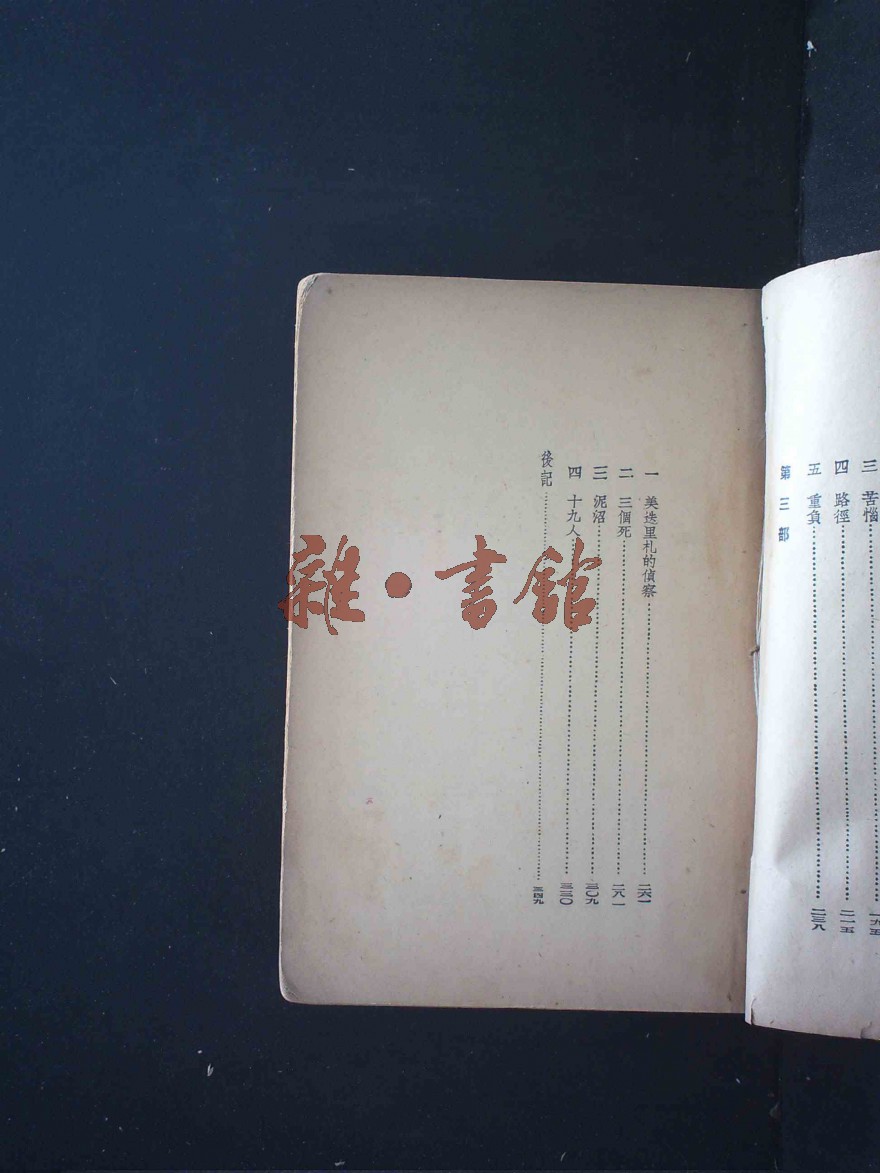 三 苦惱……一九五
四 路徑……二一五
五 重負……二三八
第三部
一 美迭里札的偵察……二六一
二 三個死……二八一
三 泥沼……三〇九
四 十九人……三三〇
後記……三四九
雜·書館